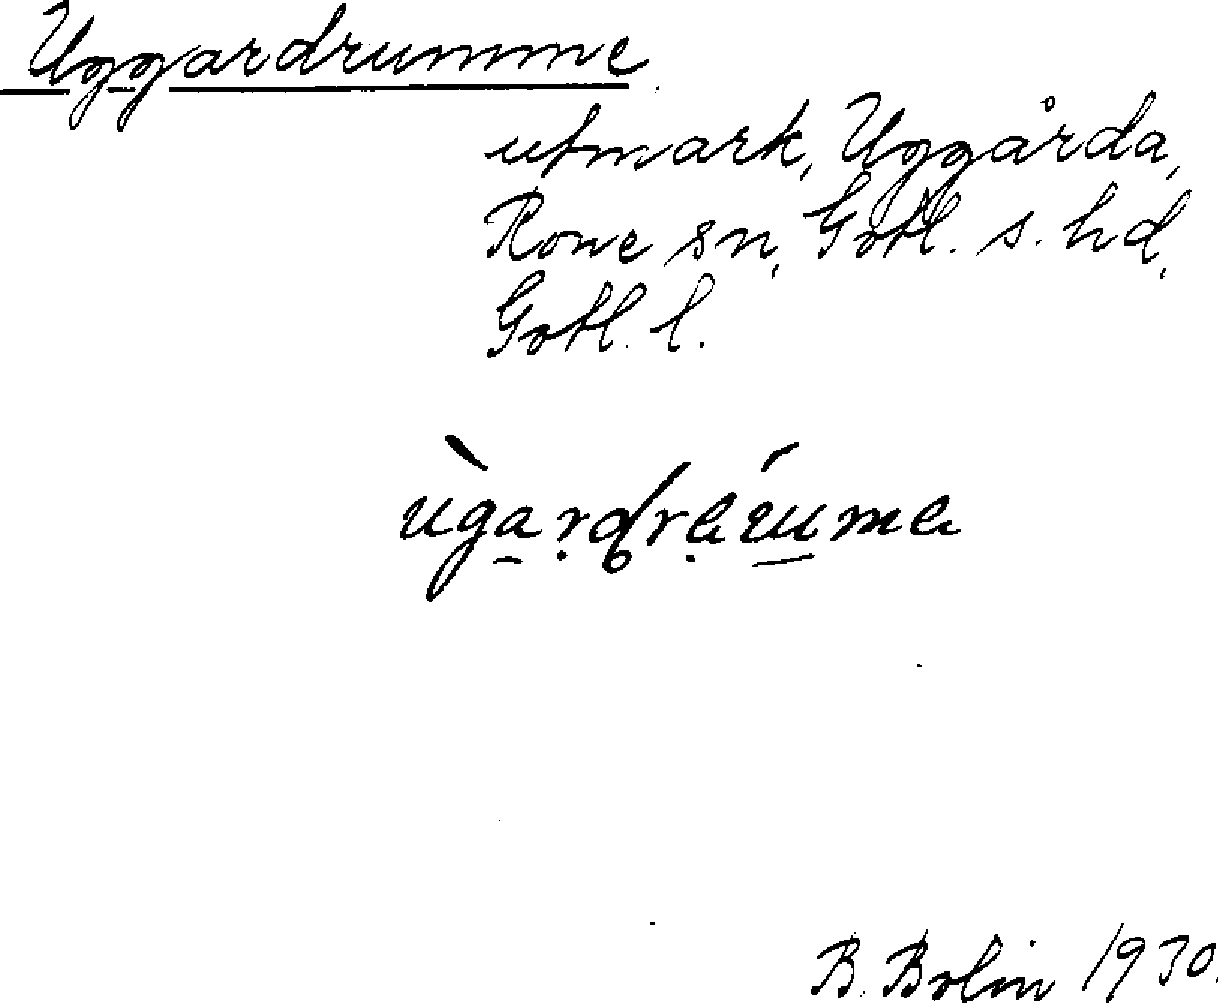 Uggardrumme
utmark, Uggårda,
Rone sn, Gotl. s. hd,
Gotl. l.
B. Bolin 1930.